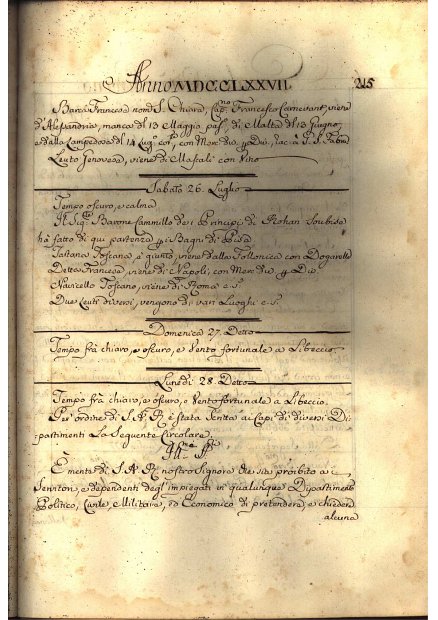 Anno MDCCLXXVII 215
Barca Francese nom.ta S. Chiara, Cap.no Francesco Carnevant, viene
d'Alessandria, manca del 13 Maggio pas.o, di Malta del 13 Giugno,
e dalla Lampedosa del 14 Lug.o cor.e, con Merc. div.e p Div.i, rac. a
Leuto Genovese, viene di Marsali con Vino
Sabato 26. Luglio
Tempo oscuro, e calma
Il Sig.re Barone Cammillo dei Principi di Rohan Soubise
ha fatto di qui partenza p i Bagni di Pisa
Tartana Toscana, è giunta, viene dalla Follonica con Dogarelle
Detta Francese, viene di Napoli, con Merc. div.e p Div.i
Navicello Toscano, viene di Roma e S.
Due Leuti diversi, vengono di varj Luoghi e S.
Domenica 27. Detto
Tempo frà chiaro, e oscuro, e Vento fortunale a Libeccio
Lunedì 28. Detto
Tempo frà chiaro, e oscuro, e Vento fortunale a Libeccio.
Per ordine di S. A. R. è stata Scritta ai Capi di diversi Di-
partimenti La Seguente Circolare
Ill.mo Sig.re
È mente di S. A. R. nostro Signore che sia proibito ai
Servitori, e dependenti degl'impiegati in qualunque Dipartimento
Politico, Civile, Militare, ed Economico di pretendere, e chiedere
alcuna